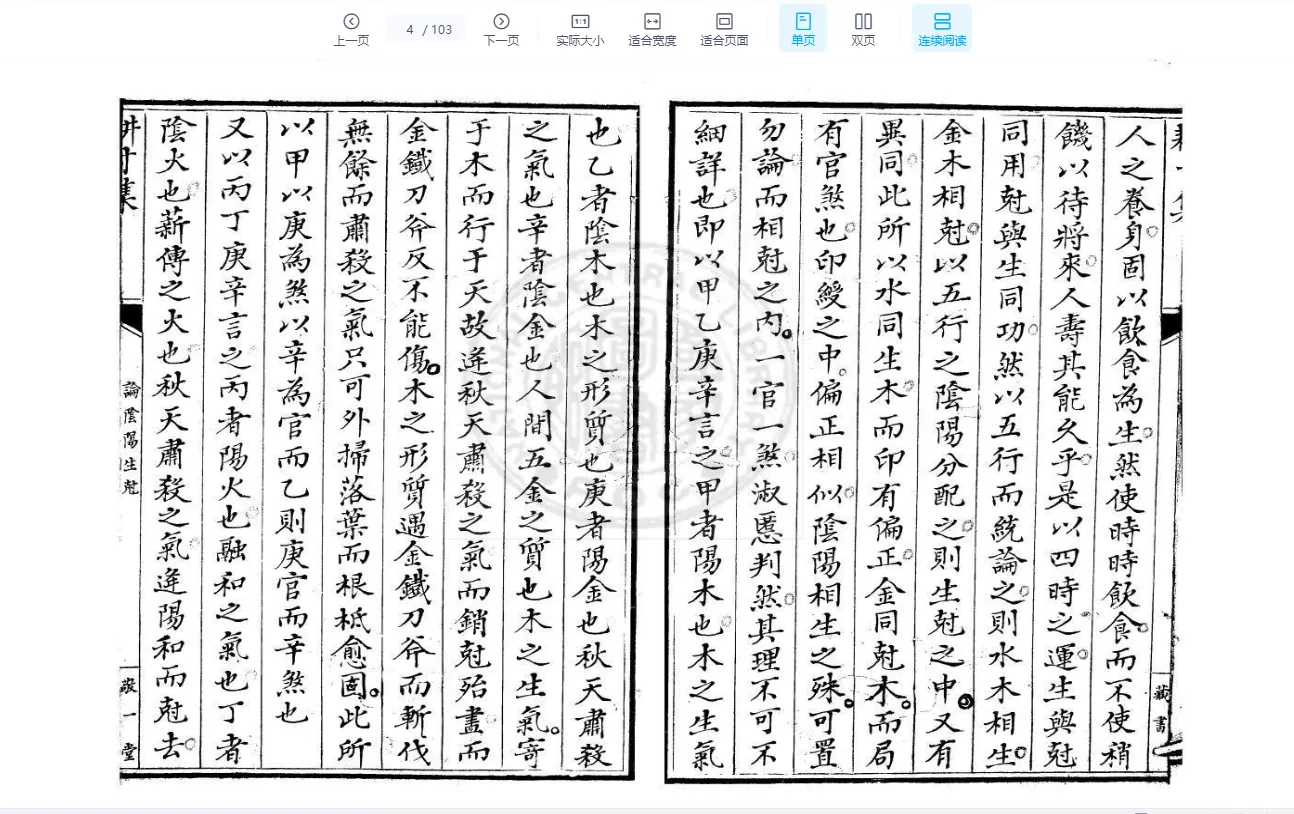 上一页
4 / 103
下一页
1:1
实际大小
适合宽度
适合页面
单页
双页
连续阅读
人之養身固以飲食為生然使時時飲食而不使稍
饑以待將來人壽其能久乎是以四時之運生與尅
同用尅與生同功然以五行而統論之則水木相生
金木相尅以五行之陰陽分配之則生尅之中又有
異同此所以水同生木而印有偏正金同尅木而局
有官煞也印綬之中偏正相似陰陽相生之殊可置
勿論而相尅之内一官一煞淑慝判然其理不可不
細詳也即以甲乙庚辛言之甲者陽木也木之生氣
藏書
也乙者陰木也木之形質也庚者陽金也秋天肅殺
之氣也辛者陰金也人間五金之質也木之生氣寄
于木而行于天故逢秋天肅殺之氣而銷尅殆盡而
金鐵刀斧反不能傷木之形質遇金鐵刀斧而斬伐
無餘而肅殺之氣只可外掃落葉而根柢愈固此所
以甲以庚為煞以辛為官而乙則庚官而辛煞也
又以丙丁庚辛言之丙者陽火也融和之氣也丁者
陰火也薪傳之火也秋天肅殺之氣逢陽和而尅去
論陰陽生尅
敬一堂